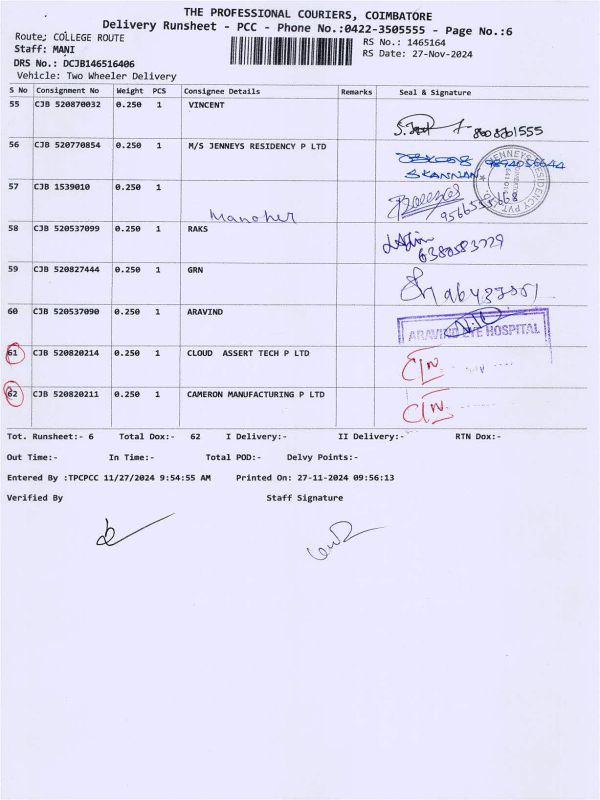 THE PROFESSIONAL COURIERS, COIMBATORE
Delivery Runsheet - PCC - Phone No.:0422-3505555 - Page No.:6
Route; COLLEGE ROUTE RS No.: 1465164
Staff: MANI RS Date: 27-Nov-2024
DRS No.: DCJB146516406
Vehicle: Two Wheeler Delivery
S No Consignment No Weight PCS Consignee Details Remarks Seal & Signature
55 CJB 520870032 0.250 1 VINCENT
56 CJB 520770854 0.250 1 M/S JENNEYS RESIDENCY P LTD
9894056644
S KANNAN
JENNEYS RESIDENCY PVT.
57 CJB 1539010 0.250 1
Manoher 9566555668
58 CJB 520537099 0.250 1 RAKS
6380583729
59 CJB 520827444 0.250 1 GRN
60 CJB 520537090 0.250 1 ARAVIND
ARAVIND EYE HOSPITAL
61 CJB 520820214 0.250 1 CLOUD ASSERT TECH P LTD
62 CJB 520820211 0.250 1 CAMERON MANUFACTURING P LTD
Tot. Runsheet:- 6 Total Dox:- 62 I Delivery:- II Delivery:- RTN Dox:-
Out Time:- In Time:- Total POD:- Delvy Points:-
Entered By :TPCPCC 11/27/2024 9:54:55 AM Printed On: 27-11-2024 09:56:13
Verified By Staff Signature